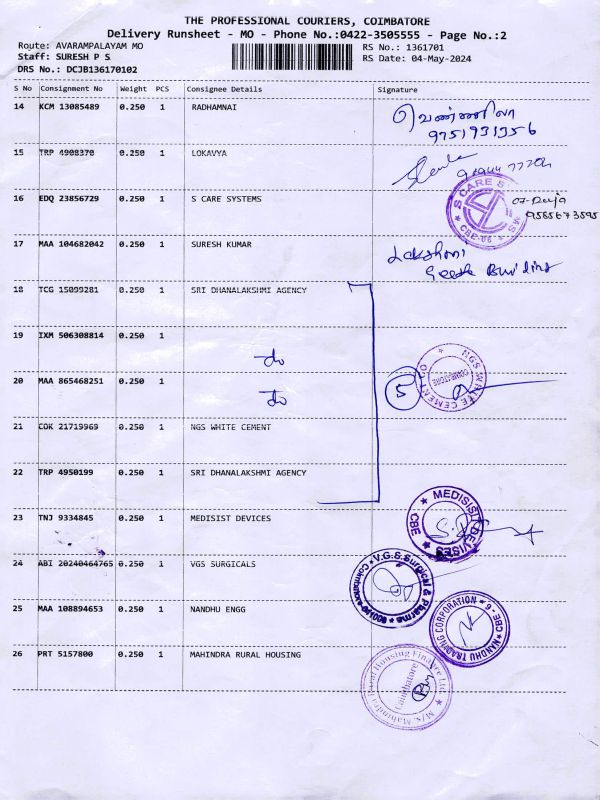 THE PROFESSIONAL COURIERS, COIMBATORE
Delivery Runsheet - MO - Phone No.:0422-3505555 - Page No.:2
Route: AVARAMPALAYAM MO RS No.: 1361701
Staff: SURESH P S RS Date: 04-May-2024
DRS No.: DCJB136170102
S No Consignment No Weight PCS Consignee Details Signature
14 KCM 13085489 0.250 1 RADHAMNAI வெண்ணிலா
9751931356
15 TRP 4908370 0.250 1 LOKAVYA
16 EDQ 23856729 0.250 1 S CARE SYSTEMS
S CARE CBE-06
9585673595
17 MAA 104682042 0.250 1 SURESH KUMAR Lakshmi
Building
18 TCG 15099281 0.250 1 SRI DHANALAKSHMI AGENCY
19 IXM 506308814 0.250 1
do
20 MAA 865468251 0.250 1
do
5
NGS WHITE CEMENT COIMBATORE
21 COK 21719969 0.250 1 NGS WHITE CEMENT
22 TRP 4950199 0.250 1 SRI DHANALAKSHMI AGENCY
23 TNJ 9334845 0.250 1 MEDISIST DEVICES
MEDISIST DEVISES CBE
24 ABI 20240464765 0.250 1 VGS SURGICALS
V.G.S.Surgical & Pharma Coimbatore
25 MAA 108894653 0.250 1 NANDHU ENGG
NANDHU TRADING CORPORATION CBE-6
26 PRT 5157800 0.250 1 MAHINDRA RURAL HOUSING
M/s. Mahindra Rural Housing Finance Ltd. Coimbatore